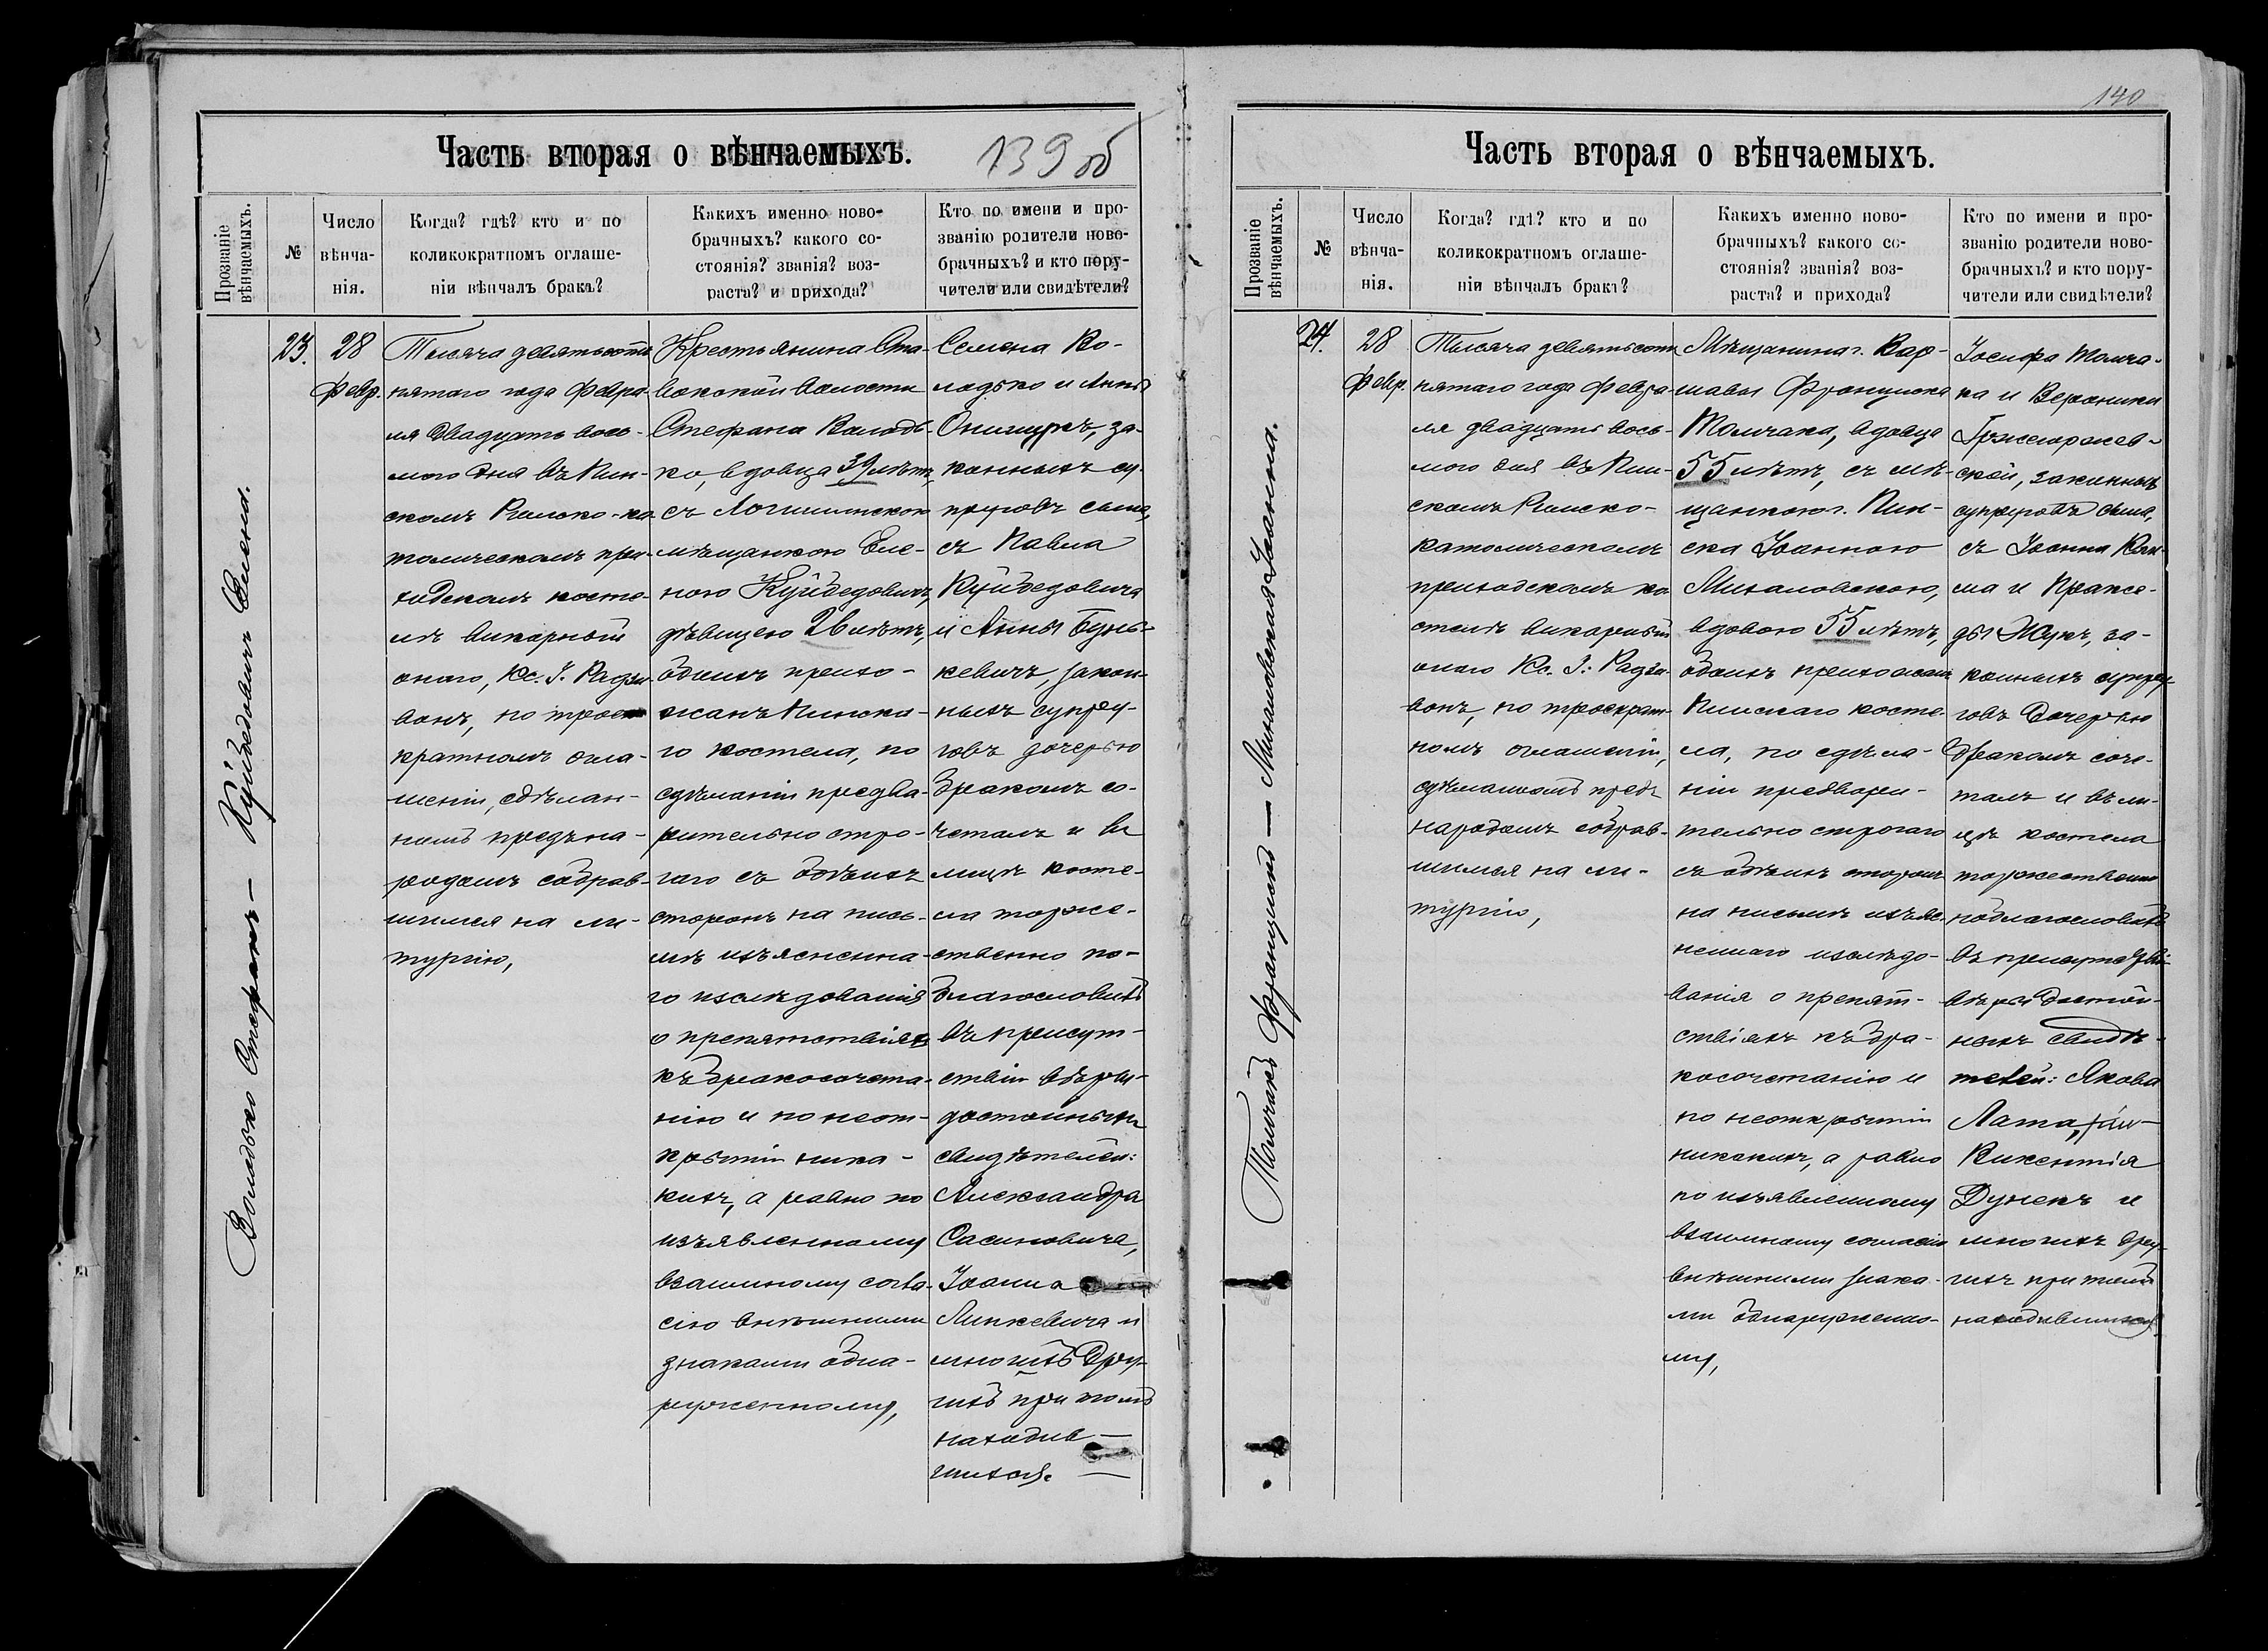 Часть вторая о вѣнчаемыхъ.
139 об
Прозваніе вѣнчаемыхъ.
№
Число вѣнча-нія.
Когда? гдѣ? кто и по
коликократномъ оглаше-
ніи вѣнчалъ бракъ?
Какихъ именно ново-
брачныхъ? какого со-
стоянія? званія? воз-
раста? и прихода?
Кто по имени и про-
званію родители ново-
брачныхъ? и кто пору-
чители или свидѣтели?
Володько Стефанъ — Куйбедовичъ Елена.
23.
28
Февр.
Тысяча девятьсотъ
пятаго года Февра-
ля двадцать вось-
мого дня въ Пин-
скомъ Римско-ка-
толическомъ при-
ходскомъ косте-
лѣ викарный
онаго, Кс. І. Радзи-
вонъ, по трое-
кратномъ огла-
шеніи, сдѣлан-
номъ предъ на-
родомъ собрав-
шимся на ли-
тургію,
Крестьянина Ста-
вокской волости
Стефана Володь-
ко, вдовца 39 лѣтъ,
съ Логишинскою
мѣщанкою Еле-
ною Куйбедовичъ,
дѣвицею 26 лѣтъ,
обоихъ прихо-
жанъ Пинска-
го костела, по
сдѣланіи предва-
рительно стро-
гаго съ обѣихъ
сторонъ на пись-
мѣ изъясненна-
го изслѣдованія
о препятствіяхъ
къ бракосочета-
нію и по неот-
крытіи ника-
кихъ, а равно по
изъявленному
взаимному согла-
сію внѣшними
знаками обна-
руженному,
Семена Во-
лодько и Анны
Онишукъ, за-
конныхъ су-
пруговъ сына,
съ Павла
Куйбедовича
и Анны Бунь-
кевичъ, закон-
ныхъ супру-
говъ дочерью
бракомъ со-
четалъ и въ
лицѣ косте-
ла торже-
ственно по-
благословилъ
въ присут-
ствіи вѣры-
достойныхъ
свидѣтелей:
Александра
Сасиновича,
Іоанна
Линкевича и
многихъ дру-
гихъ при томъ
находив-
шихся.
140
Часть вторая о вѣнчаемыхъ.
Прозваніе вѣнчаемыхъ.
№
Число вѣнча-нія.
Когда? гдѣ? кто и по
коликократномъ оглаше-
ніи вѣнчалъ бракъ?
Какихъ именно ново-
брачныхъ? какого со-
стоянія? званія? воз-
раста? и прихода?
Кто по имени и про-
званію родители ново-
брачныхъ? и кто пору-
чители или свидѣтели?
Толчакъ Францишекъ — Михаловская Іоанна.
24.
28
Февр.
Тысяча девятьсотъ
пятаго года Февра-
ля двадцать вось-
мого дня въ Пин-
скомъ Римско-
католическомъ
приходскомъ ко-
стелѣ викарный
онаго Кс. І. Радзи-
вонъ, по троекрат-
номъ оглашеніи,
сдѣланномъ предъ
народомъ собрав-
шимся на ли-
тургію,
Мѣщанина г. Вар-
шавы Францишка
Толчака, вдовца
55 лѣтъ, съ мѣ-
щанкою г. Пин-
ска Іоанною
Михаловскою,
вдовою 55 лѣтъ,
обоихъ прихожанъ
Пинскаго косте-
ла, по сдѣла-
ніи предвари-
тельно строгаго
съ обѣихъ сторонъ
на письмѣ изъяс-
неннаго изслѣдо-
ванія о препят-
ствіяхъ къ бра-
косочетанію и
по неоткрытіи
никакихъ, а равно
по изъявленному
взаимному согласію
внѣшними знака-
ми обнаруженно-
му,
Іосифа Толча-
ка и Вероники
скои, законныхъ
супруговъ сына,
съ Іоанна
ма и Праксе-
ды Жукъ, за-
конныхъ супру-
говъ дочерью
бракомъ соче-
талъ и въ ли-
цѣ костела
торжественно
поблагословилъ
въ присутствіи
вѣры достой-
ныхъ свидѣ-
телей: Якова
Лата,
Викентія
Дунекъ и
многихъ дру-
гихъ при томъ
находившихся.